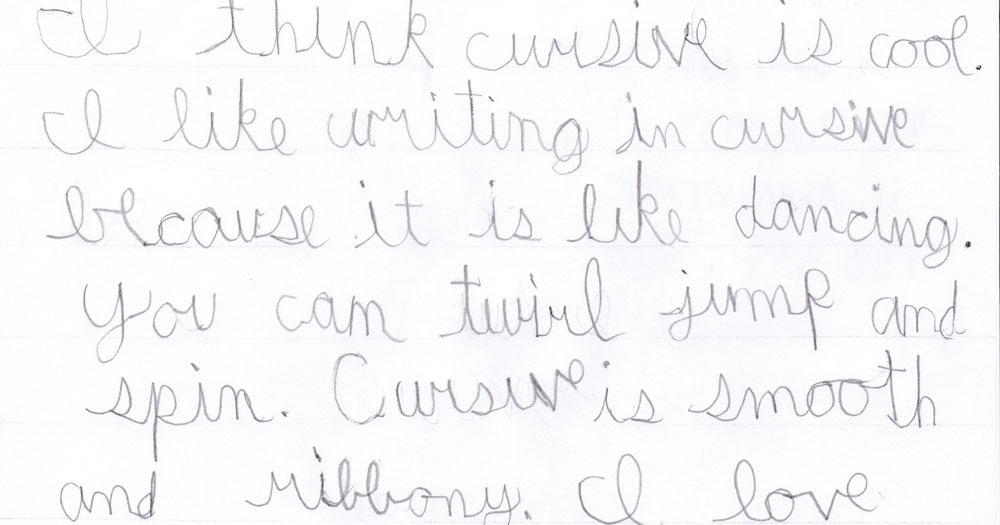 I think cursive is cool.
I like writing in cursive
because it is like dancing.
You can twirl jump and
spin. Cursive is smooth
and ribbony. I love